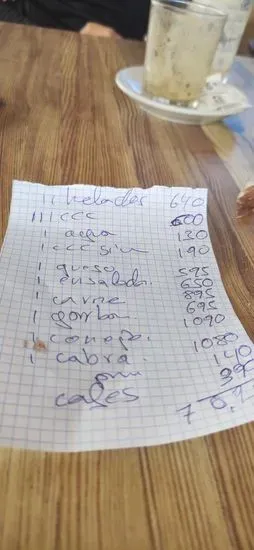 11 helados 640
111 ccc 600
1 agua 130
1 ccc sin 190
1 queso 595
1 ensalada. 650
1 carne 895
1 695
1 1090
1 conejo. 1080
1 cabra.
140
39
cafes